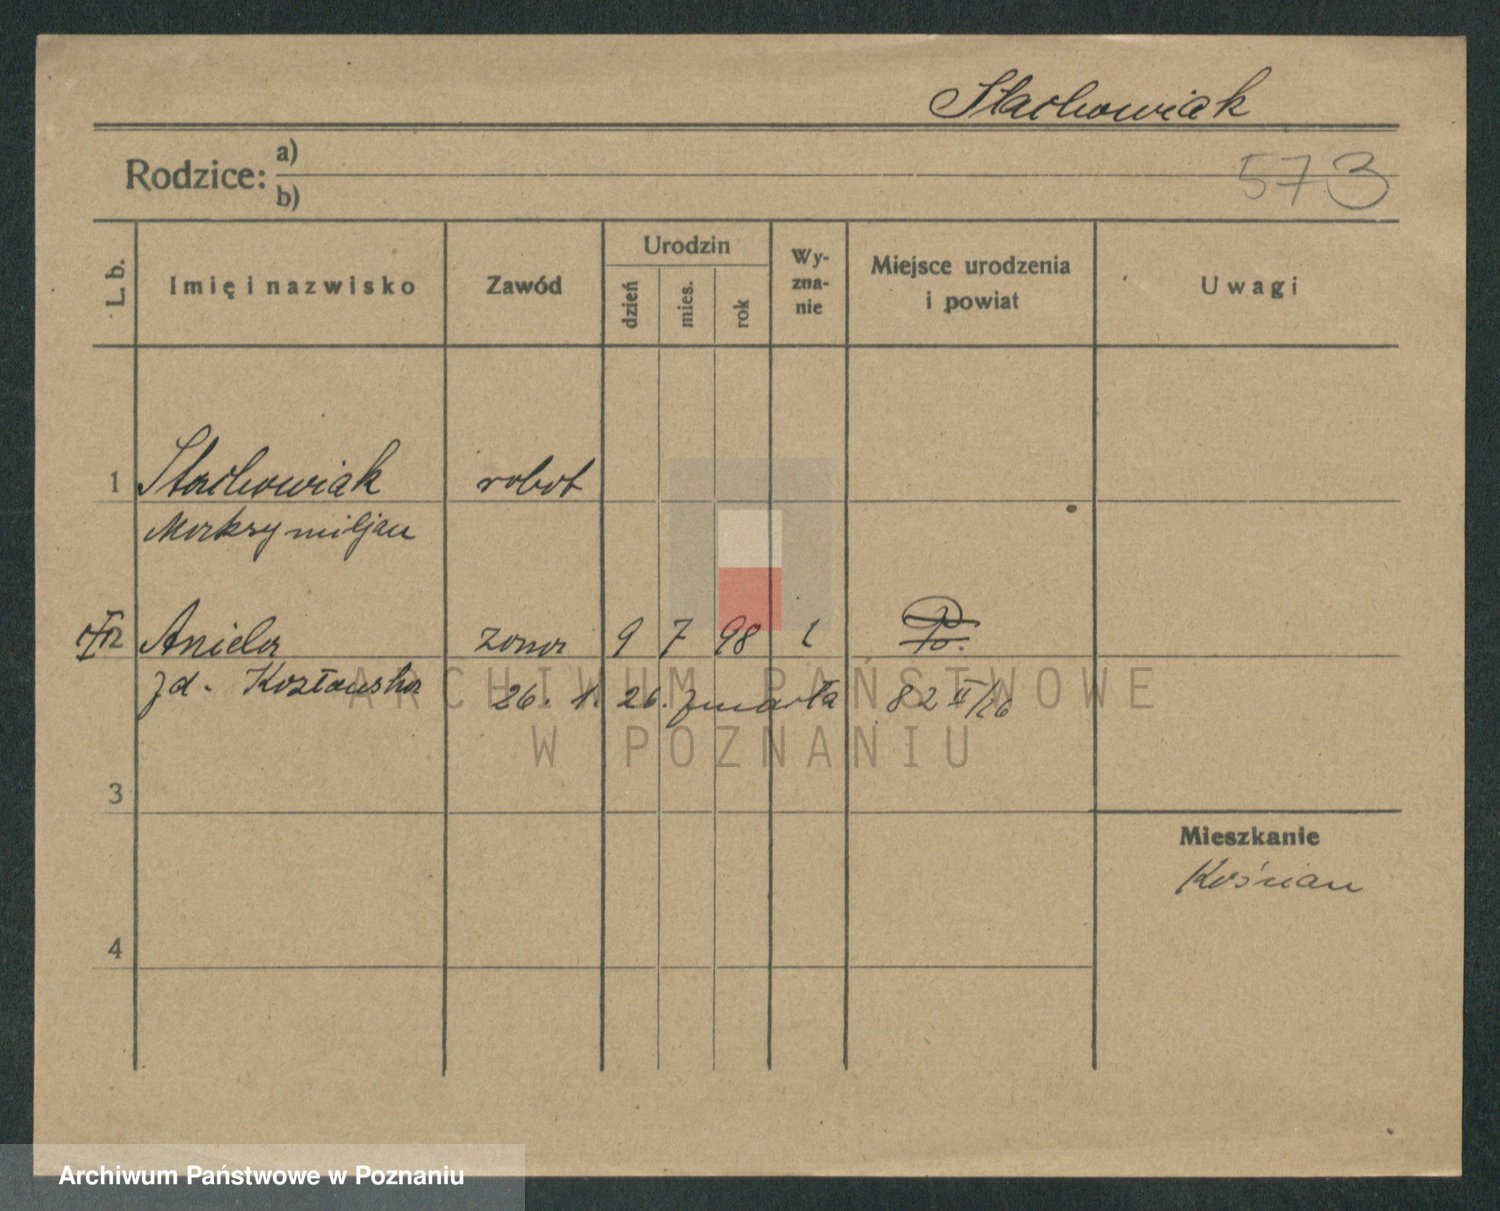 Stachowiak
Rodzice: a)
b)
573
L. b.
Imię i nazwisko
Zawód
Urodzin
dzień
mies.
rok
Wy-
zna-
nie
Miejsce urodzenia
i powiat
Uwagi
1 Stachowiak robot
Maksymiljan
Aniela żona 9 7 98
zd. Kozłowska 26. 1. 26. zmarła 82 II/26
3
Mieszkanie
Kościan
4
ARCHIWUM PAŃSTWOWE
W POZNANIU
Archiwum Państwowe w Poznaniu